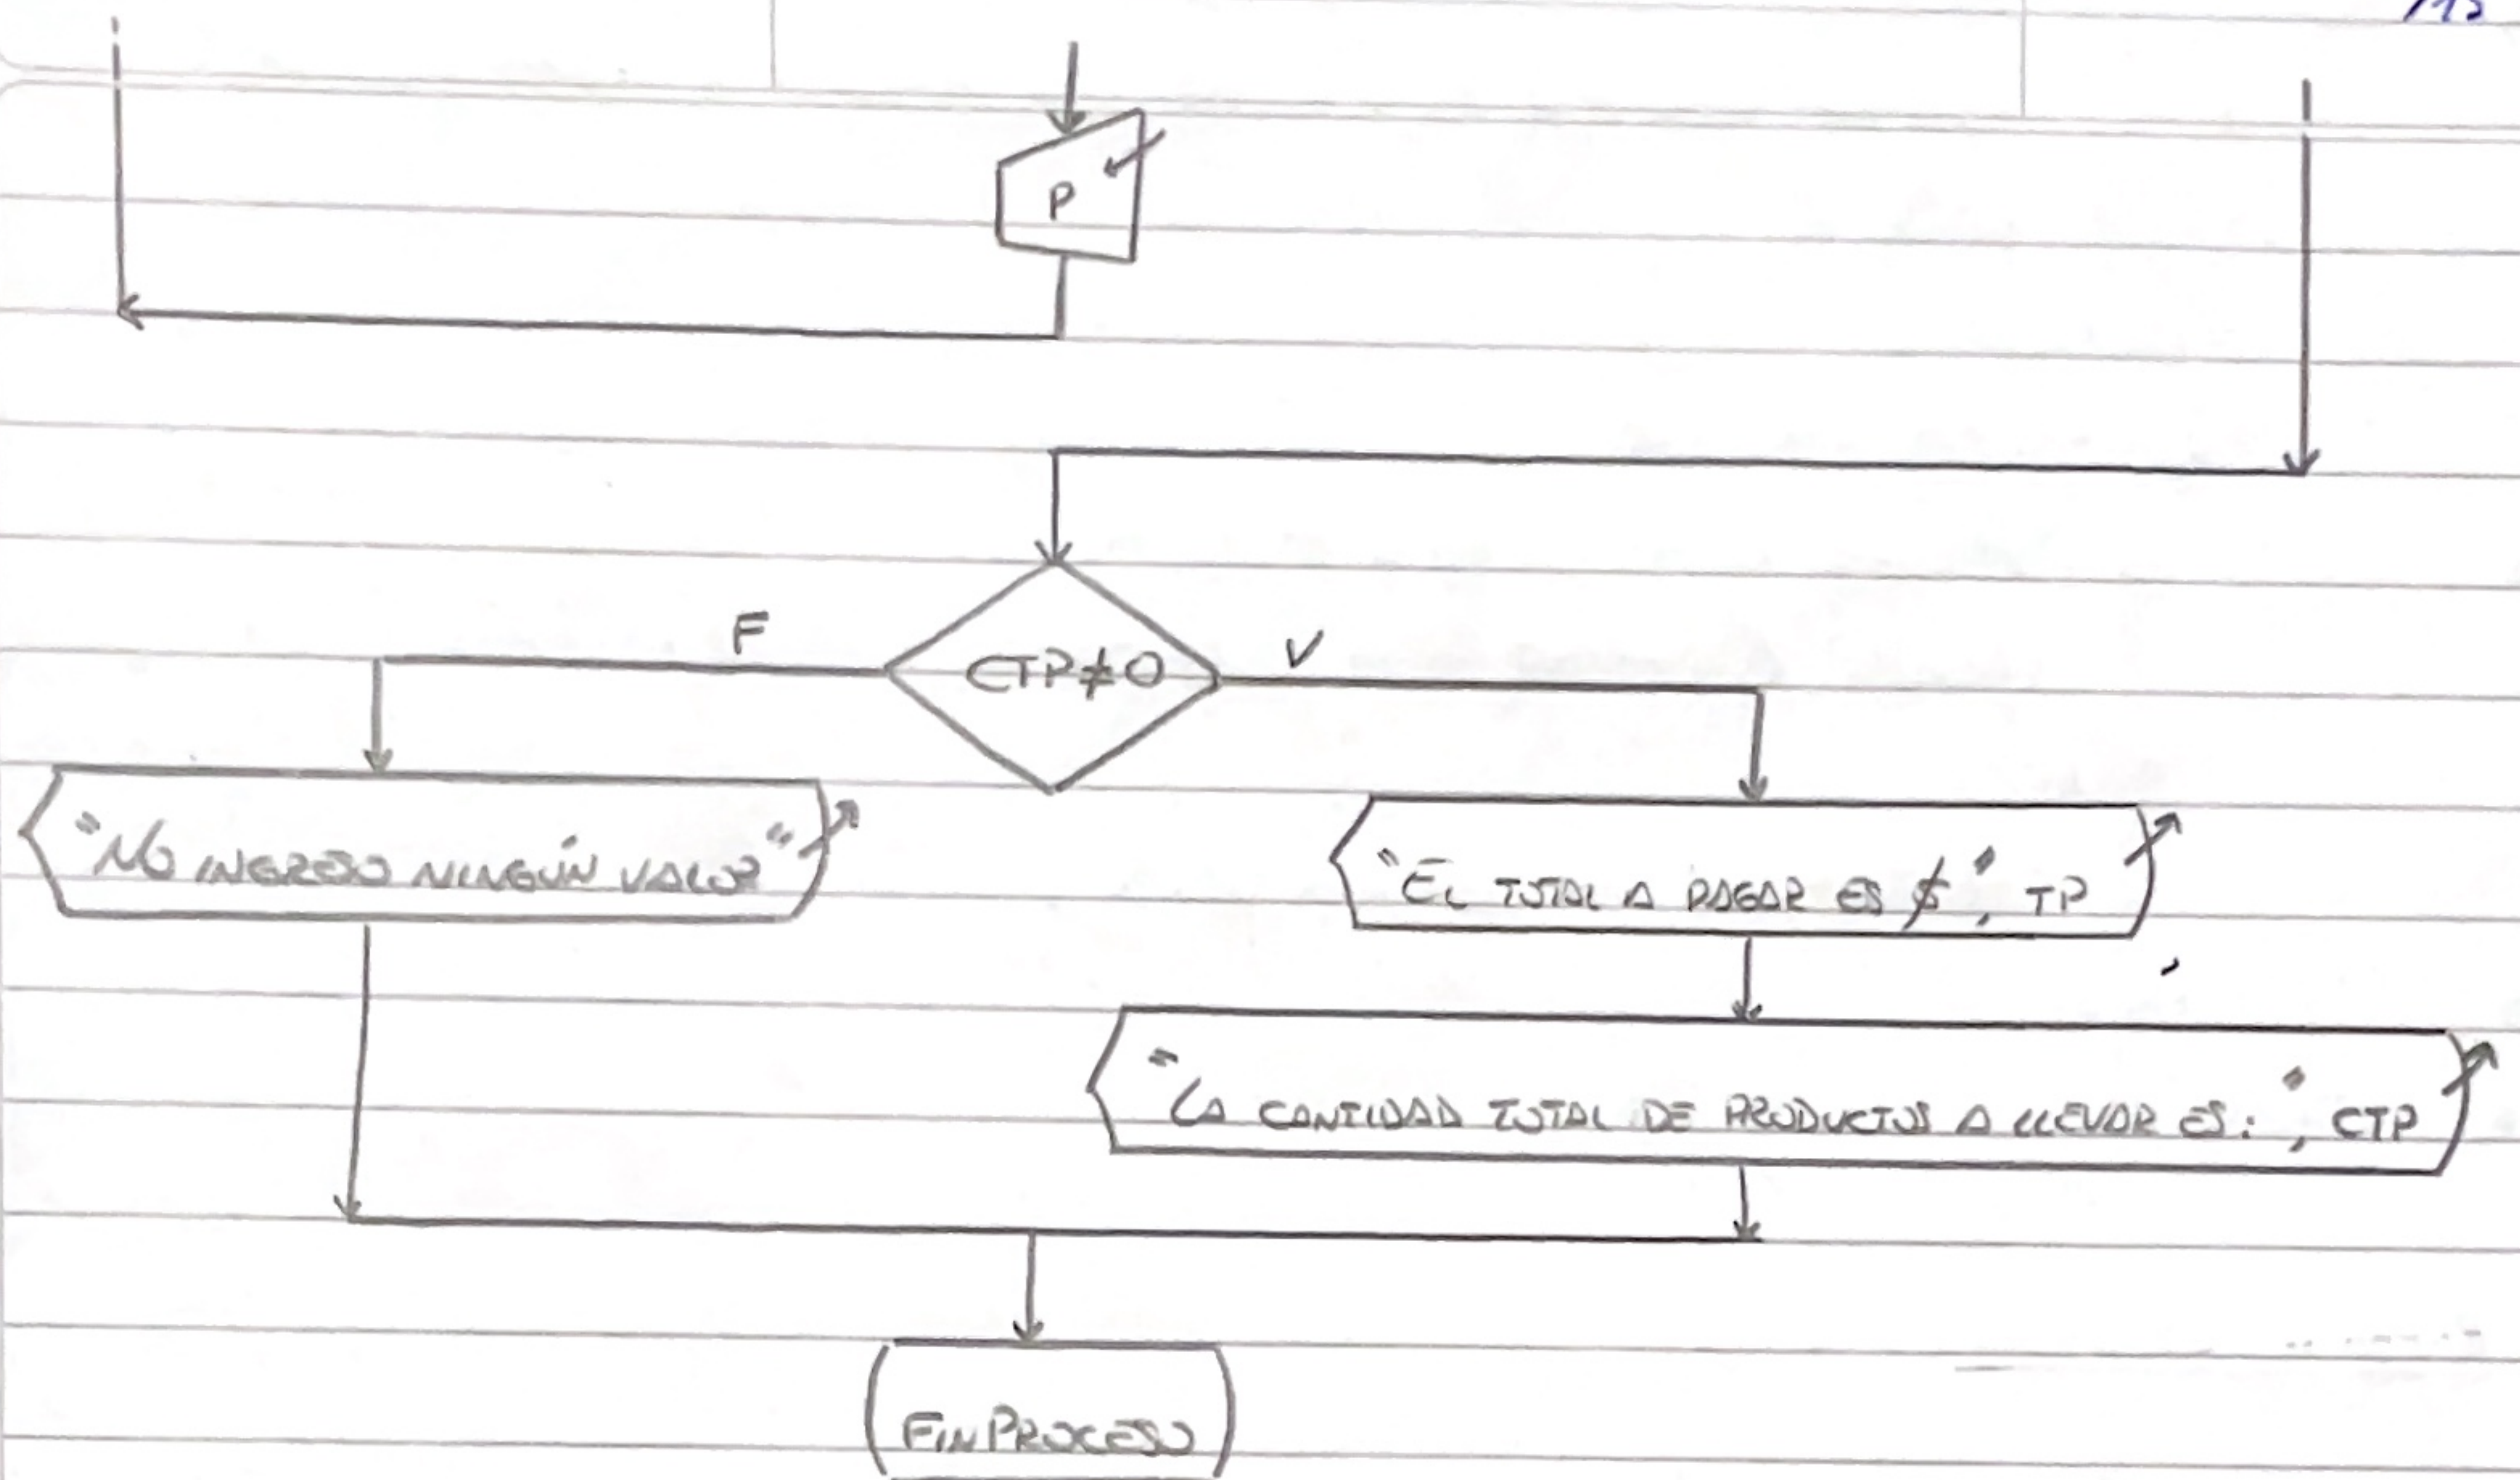 /12
P
F
V
CTP≠0
"No INGRESO NINGÚN VALOR"
"EL TOTAL A PAGAR ES $", TP
"LA CANTIDAD TOTAL DE PRODUCTOS A LLEVAR ES: ", CTP
FINPROCESO